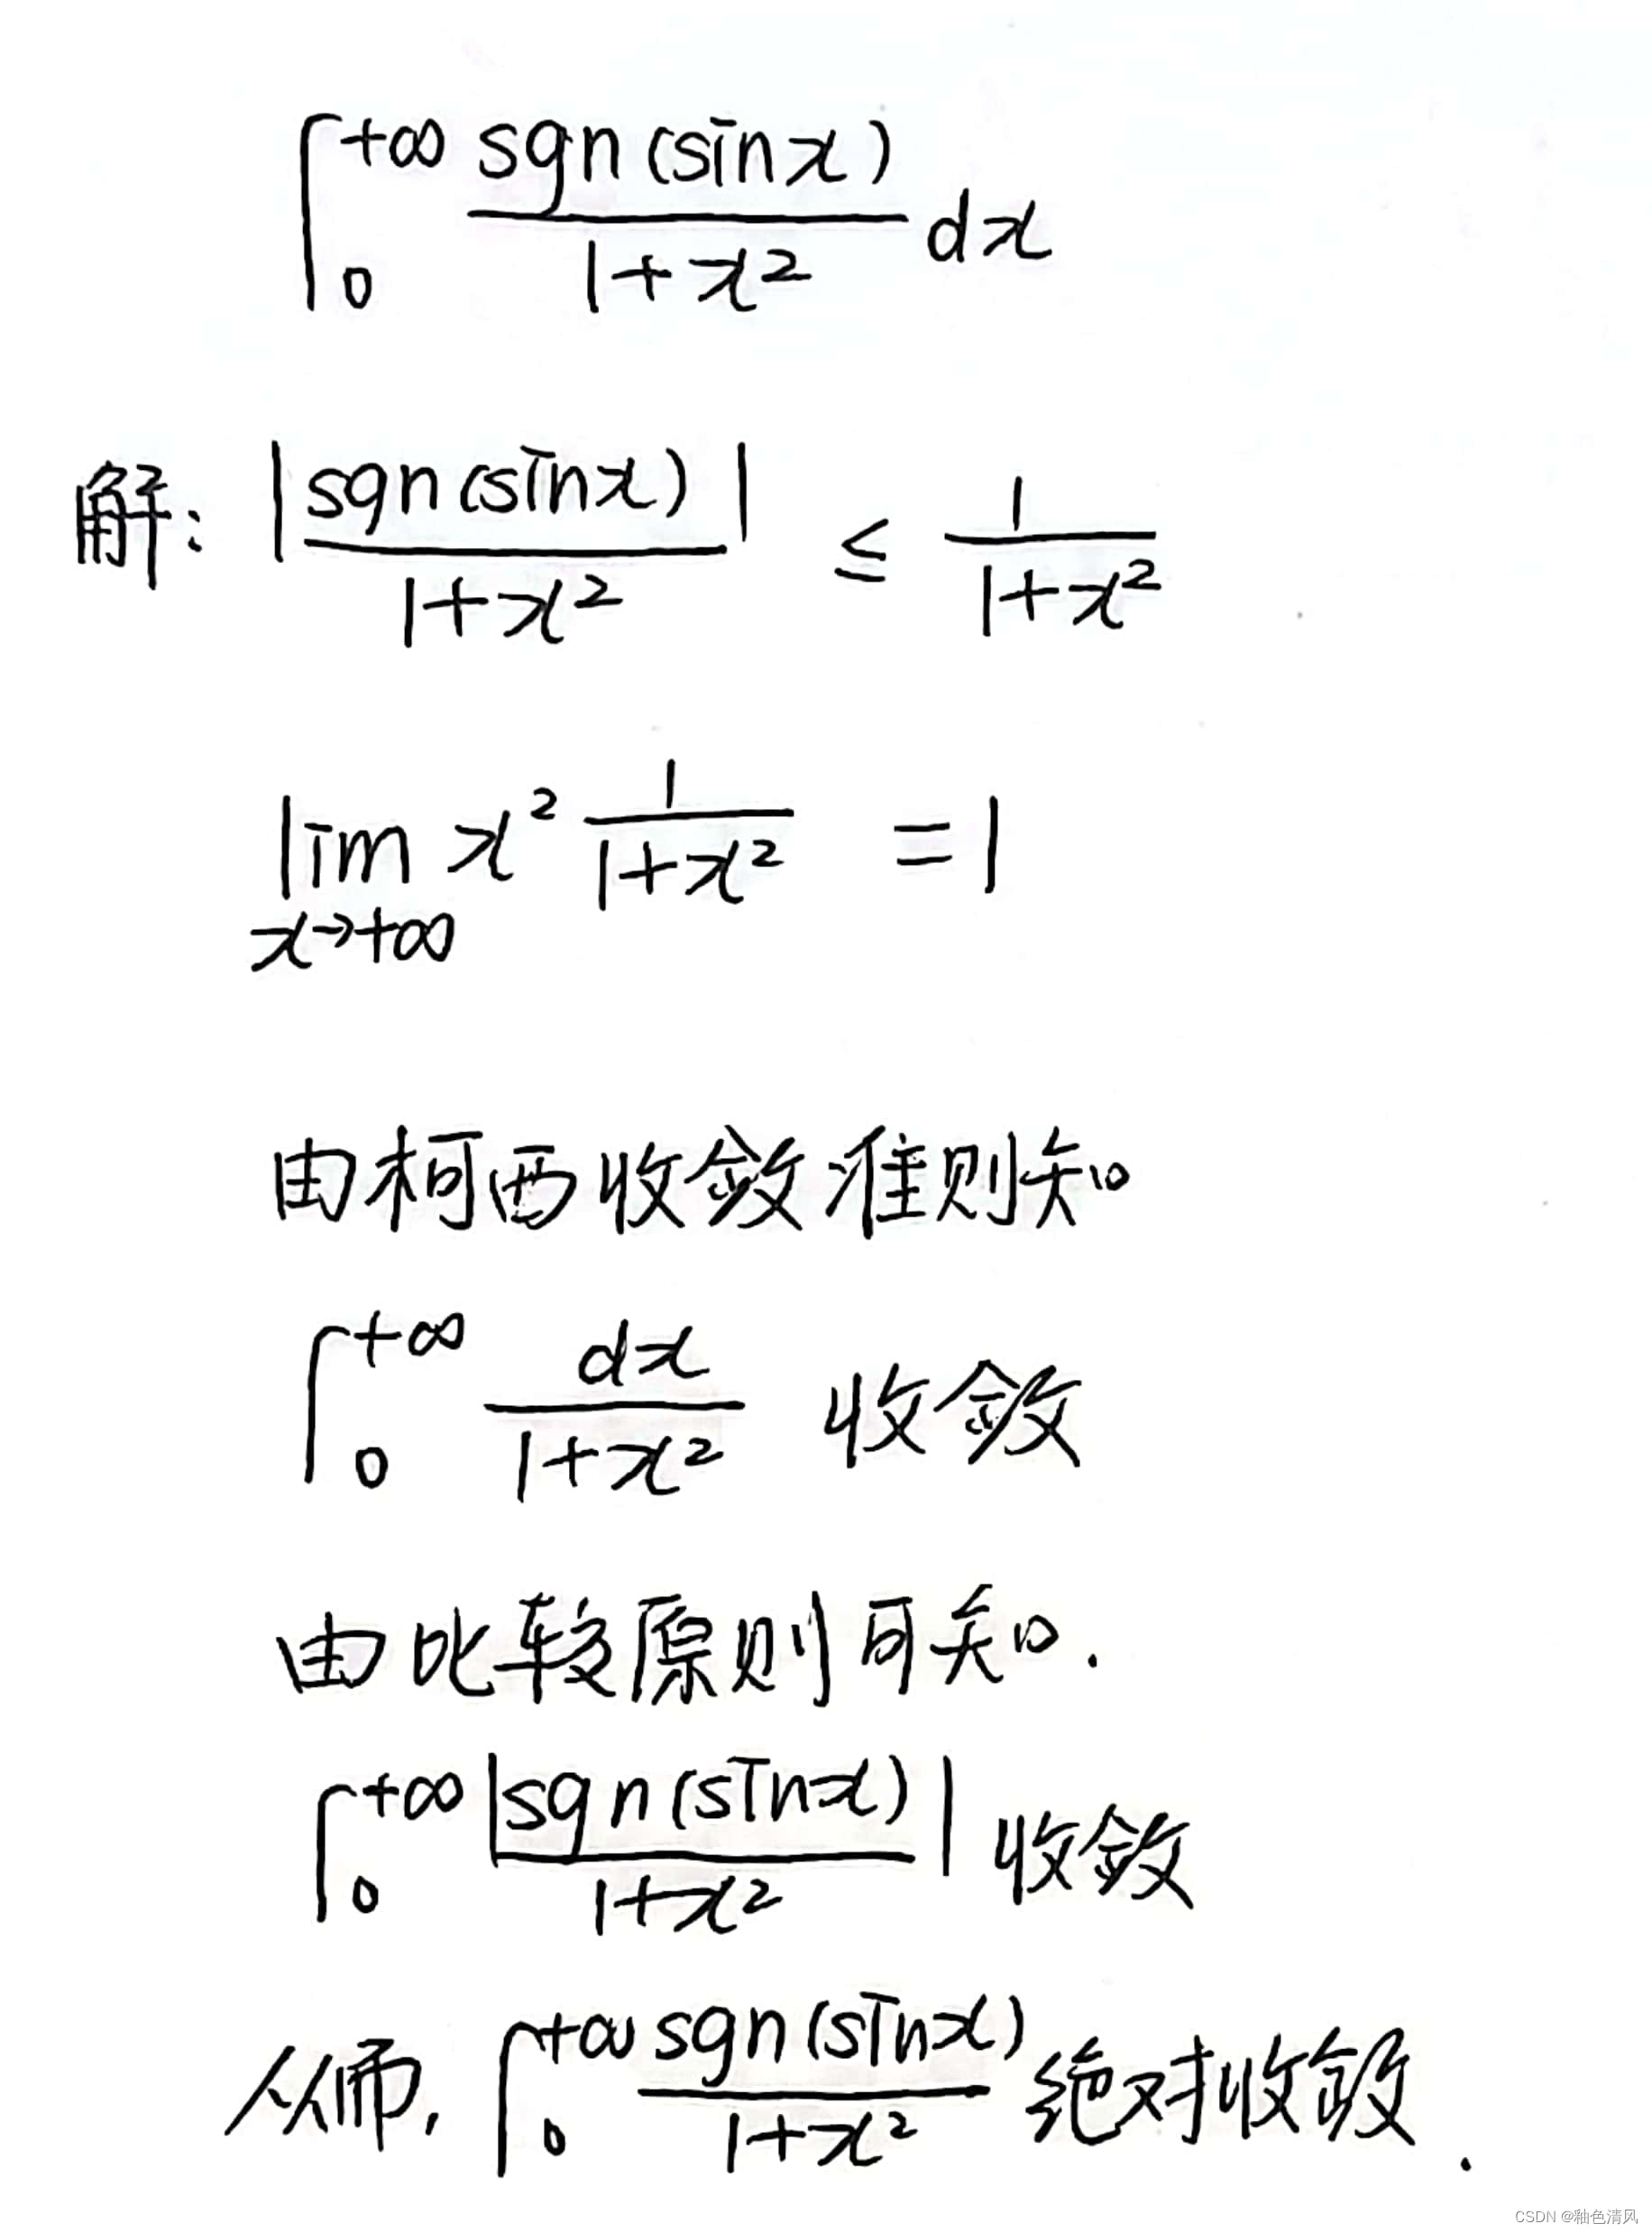 ∫₀^{+∞} sgn(sinx)/(1+x²) dx
解: |sgn(sinx)/(1+x²)| ≤ 1/(1+x²)
lim_{x→+∞} x² 1/(1+x²) = 1
由柯西收敛准则知
∫₀^{+∞} dx/(1+x²) 收敛
由比较原则可知.
∫₀^{+∞} |sgn(sinx)/(1+x²)| 收敛
从而, ∫₀^{+∞} sgn(sinx)/(1+x²) 绝对收敛.
CSDN @釉色清风